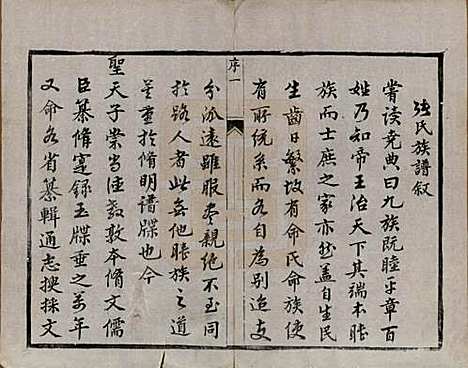 張氏族譜叙
嘗讀堯典曰九族既睦平章百
姓乃知帝王治天下其端本睦
族而士庶之家亦然蓋自生民
生齒日繁故有命氏命族使
有所統系而各自為別迨支
序一
分派遠雖服盡親絕不至同
於路人者此無他睦族之道
莫重於脩明譜牒也今
聖天子崇尚淳敦敦本脩文儒
臣纂脩寔錄玉牒垂之萬年
又命各省纂輯通志搜採文